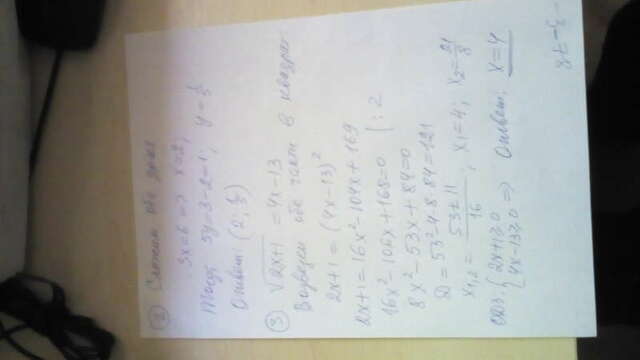 ② Сложим обе
3x=6 => x=2;
Тогда 5y=3-2=1; y=1/5
Ответ: (2; 1/5)
③ √2x+1 = 4x-13
Возведем обе части в квадрат
2x+1 = (4x-13)²
2x+1=16x²-104x+169
16x²-106x+168=0 | :2
8x²-53x+84=0
D=53²-4·8·84=121
x₁,₂ = 53±11/16 ; x₁=4; x₂=21/8
ОДЗ: { 2x+1≥0
4x-13≥0 => Ответ: x=4